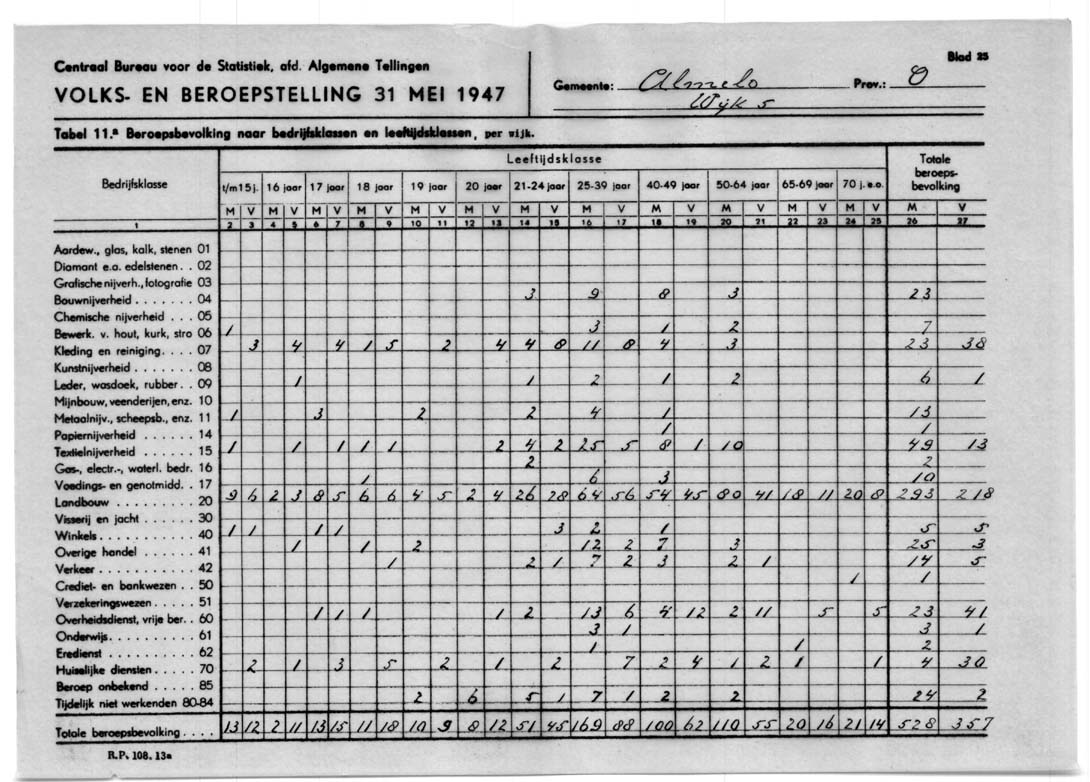 Blad 25
Centraal Bureau voor de Statistiek, afd. Algemene Tellingen
VOLKS- EN BEROEPSTELLING 31 MEI 1947
Gemeente: Almelo Prov.: O
Wijk 5
Tabel 11.ª Beroepsbevolking naar bedrijfsklassen en leeftijdsklassen, per wijk.
Bedrijfsklasse Leeftijdsklasse Totale beroeps-bevolking
t/m 15 j. 16 jaar 17 jaar 18 jaar 19 jaar 20 jaar 21-24 jaar 25-39 jaar 40-49 jaar 50-64 jaar 65-69 jaar 70 j. e.o.
M V M V M V M V M V M V M V M V M V M V M V M V M V
1 2 3 4 5 6 7 8 9 10 11 12 13 14 15 16 17 18 19 20 21 22 23 24 25 26 27
Aardew., glas, kalk, stenen 01
Diamant e.a. edelstenen . . 02
Grafische nijverh., fotografie 03
Bouwnijverheid . . . . . . . 04 3 9 8 3 23
Chemische nijverheid . . . 05
Bewerk. v. hout, kurk, stro 06 1 3 1 2 7
Kleding en reiniging. . . . 07 3 4 4 1 5 2 4 4 8 11 8 4 3 23 38
Kunstnijverheid . . . . . . . 08
Leder, wasdoek, rubber. . 09 1 1 2 1 2 6 1
Mijnbouw, veenderijen, enz. 10
Metaalnijv., scheepsb., enz. 11 1 3 2 2 4 1 13
Papiernijverheid . . . . . . 14 1 1
Textielnijverheid . . . . . 15 1 1 1 1 1 2 4 2 25 5 8 1 10 49 13
Gas-, electr.-, waterl. bedr. 16 2 2
Voedings- en genotmidd. . 17 1 6 3 10
Landbouw . . . . . . . . . 20 9 6 2 3 8 5 6 6 4 5 2 4 26 28 64 56 54 45 80 41 18 11 20 8 293 218
Visserij en jacht . . . . . . 30
Winkels . . . . . . . . . . 40 1 1 1 1 3 2 1 5 5
Overige handel . . . . . . 41 1 1 2 12 2 7 3 25 3
Verkeer . . . . . . . . . . 42 1 2 1 7 2 3 2 1 14 5
Crediet- en bankwezen . . 50 1 1
Verzekeringswezen . . . . . 51
Overheidsdienst, vrije ber. . 60 1 1 1 1 2 13 6 4 12 2 11 5 5 23 41
Onderwijs. . . . . . . . . . 61 3 1 3 1
Eredienst . . . . . . . . . 62 1 1 2
Huiselijke diensten . . . . . 70 2 1 3 5 2 1 2 7 2 4 1 2 1 1 4 30
Beroep onbekend . . . . . 85
Tijdelijk niet werkenden 80-84 2 6 5 1 7 1 2 2 24 2
Totale beroepsbevolking . . . . 13 12 2 11 13 15 11 18 10 9 8 12 51 45 169 88 100 62 110 55 20 16 21 14 528 357
R.P. 108. 13a